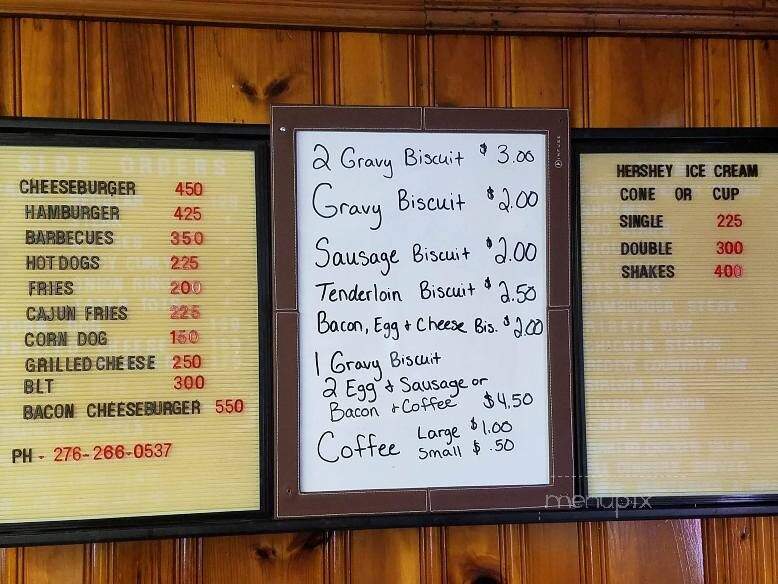 CHEESEBURGER 450
HAMBURGER 425
BARBECUES 350
HOT DOGS 225
FRIES 200
CAJUN FRIES 225
CORN DOG 150
GRILLED CHEESE 250
BLT 300
BACON CHEESEBURGER 550
PH - 276-266-0537
2 Gravy Biscuit $3.00
Gravy Biscuit $2.00
Sausage Biscuit $2.00
Tenderloin Biscuit $2.50
Bacon, Egg & Cheese Bis. $2.00
1 Gravy Biscuit
2 Egg & Sausage or
Bacon + Coffee $4.50
Coffee Large $1.00
Small $.50
HERSHEY ICE CREAM
CONE OR CUP
SINGLE 225
DOUBLE 300
SHAKES 400
menupix